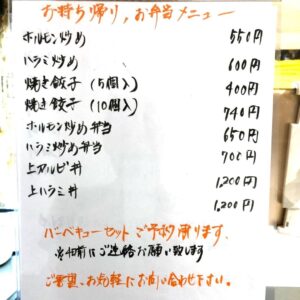 お持ち帰り、お弁当メニュー
ホルモン炒め 550円
ハラミ炒め 600円
焼き餃子 (5個入) 400円
焼き餃子 (10個入) 740円
ホルモン炒め弁当 650円
ハラミ炒め弁当 700円
上カルビ丼 1,200円
上ハラミ丼 1,200円
バーベキューセットご予約承ります、
前にご連絡お願い致します
ご要望、お気軽にお問い合わせ下さい。